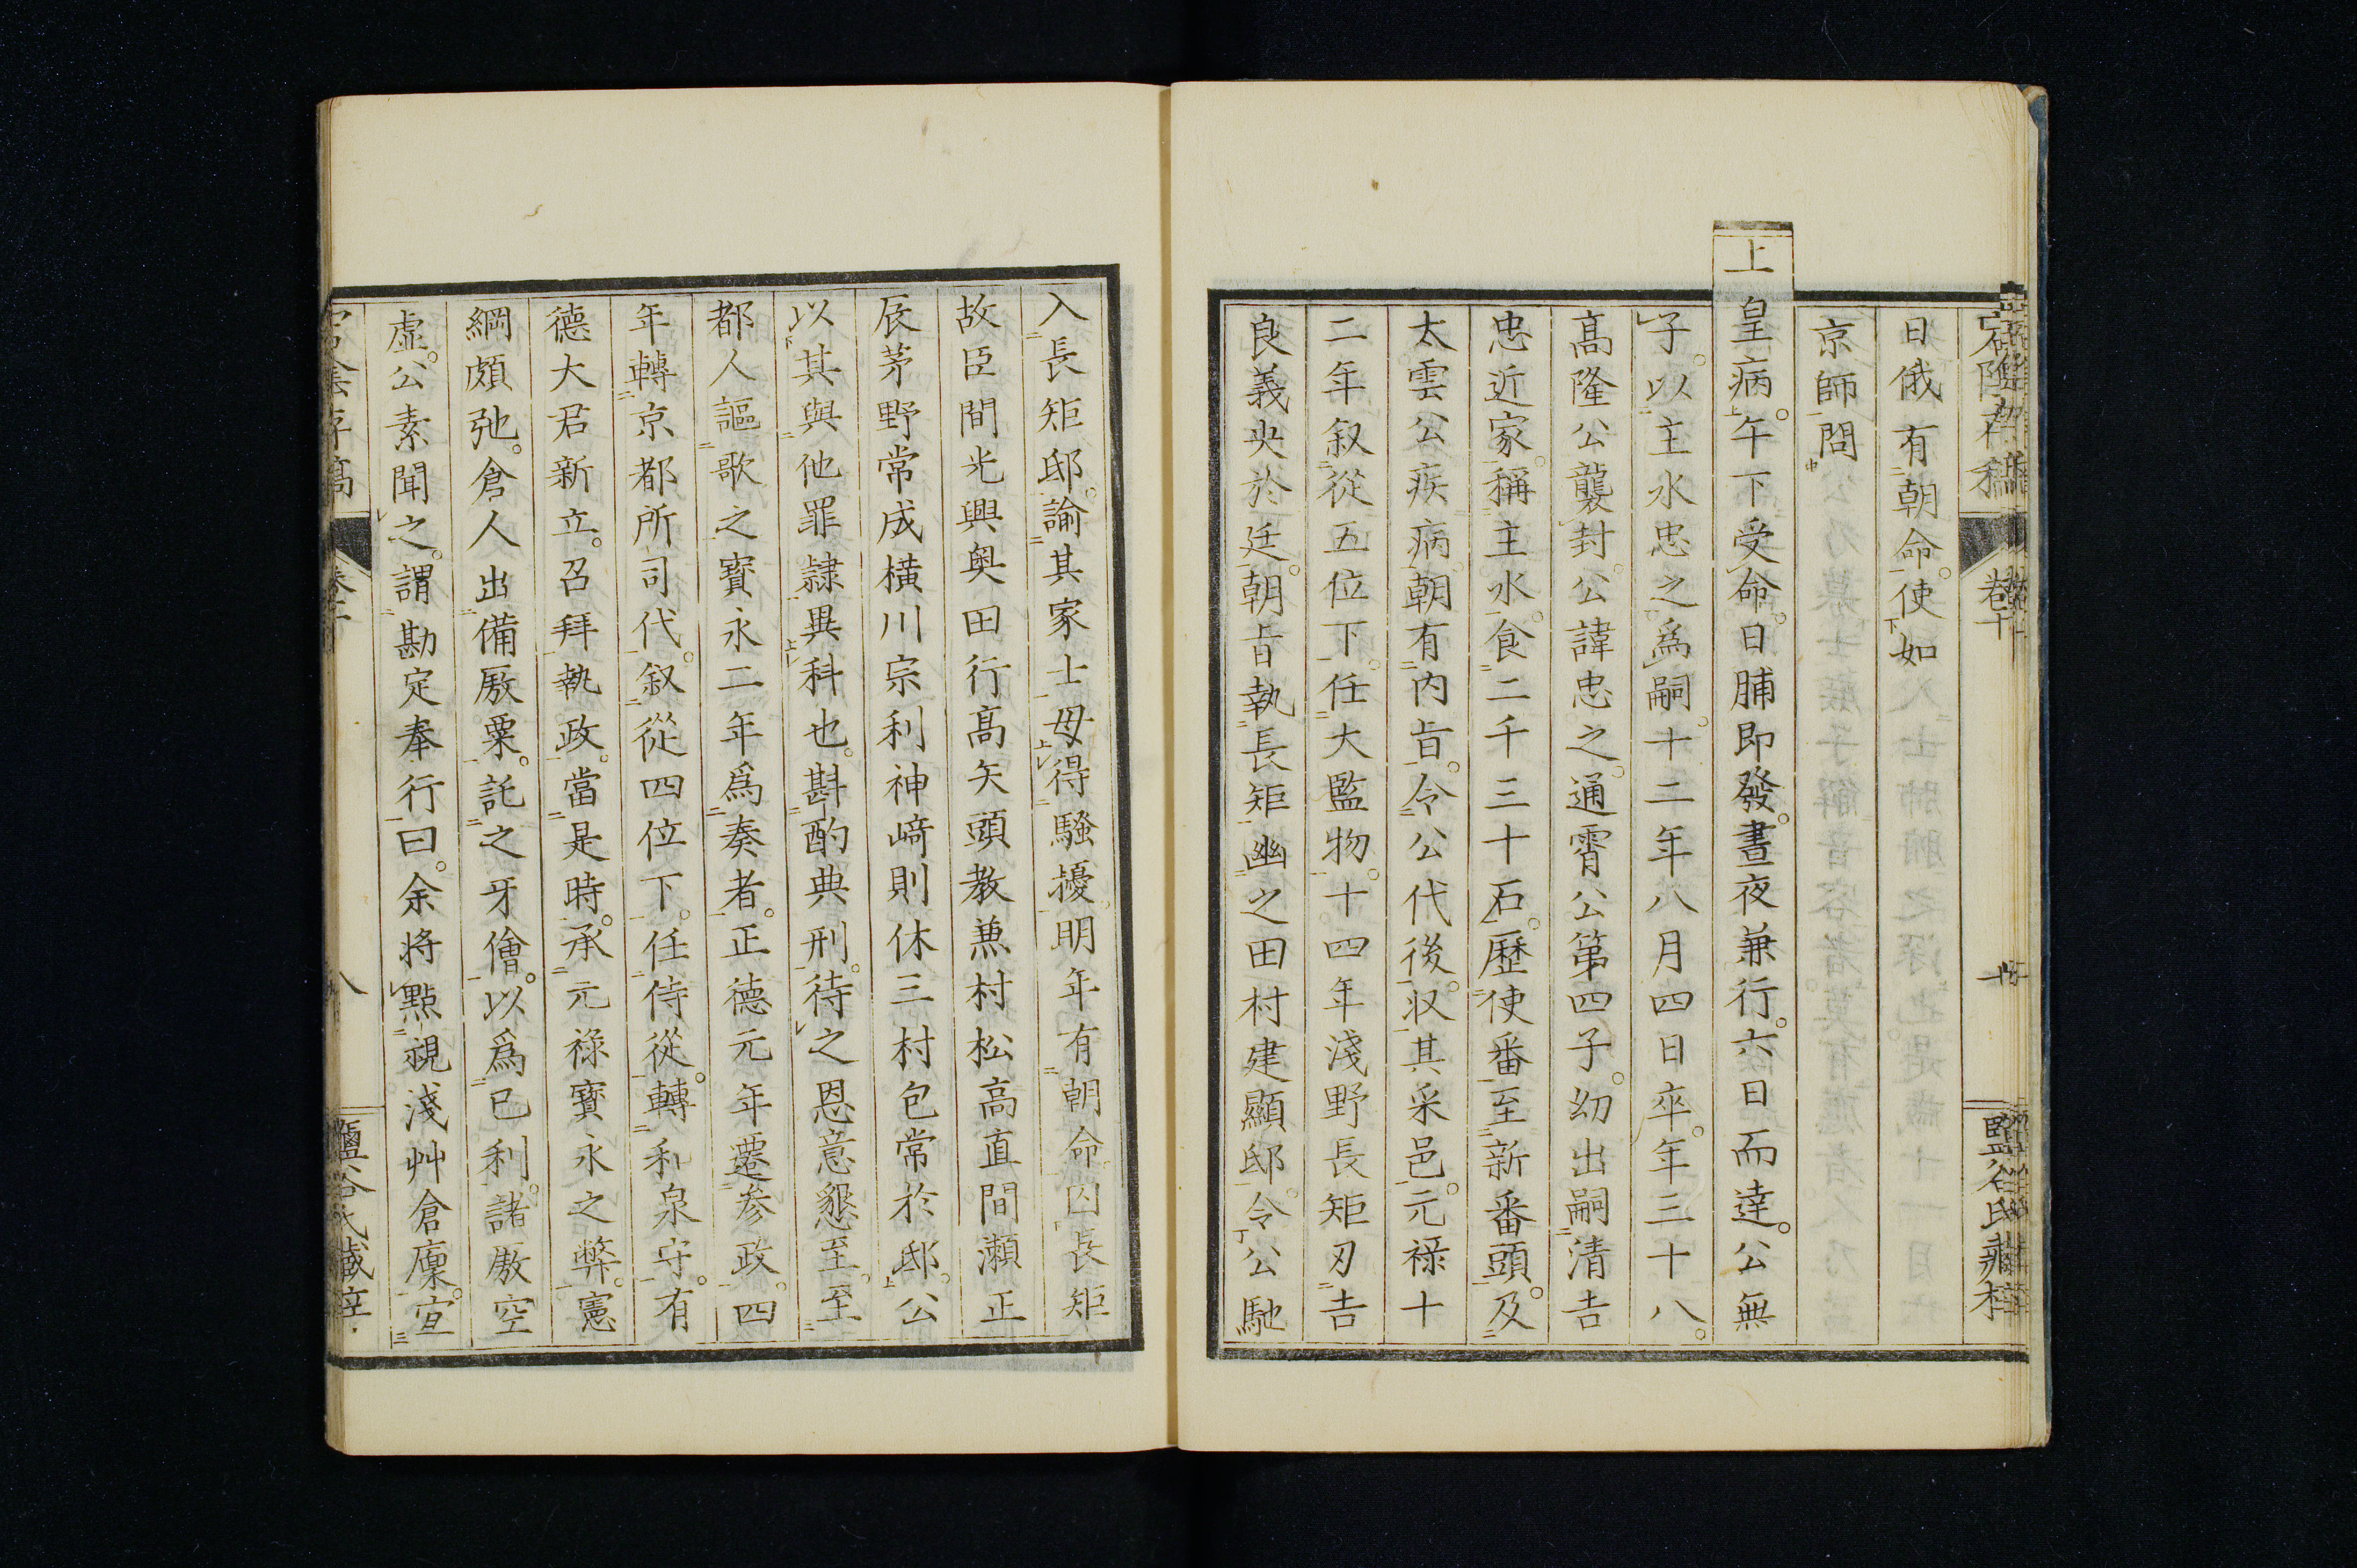 日俄有朝命。使如
京師問
上皇病。午下受命。日脯即發。晝夜兼行。六日而達。公無
子。以主水忠之爲嗣。十二年八月四日卒。年三十八。
高隆公襲封。公諱忠之。通霄公第四子。幼出嗣清吉
忠近家。稱主水。食二千三十石。歷使番至新番頭。及
太雲公疾病。朝有内旨。令公代後。収其采邑。元祿十
二年叙從五位下。任大監物。十四年淺野長矩刃吉
良義央於廷。朝旨執長矩幽之田村建顯邸。令公馳
入長矩邸。諭其家士毋得騷擾。明年有朝命囚長矩
故臣間光興奥田行高矢頭教兼村松高直間瀬正
辰茅野常成橫川宗利神﨑則休三村包常於邸。公
以其與他罪隷異科也。斟酌典刑。待之恩意懇至。至
都人謳歌之寶永二年爲奏者。正德元年遷参政。四
年轉京都所司代。叙從四位下。任侍從。轉和泉守。有
德大君新立。召拜執政。當是時。承元祿寶永之弊。憲
綱頗弛。倉人出備厫粟。託之牙儈。以爲已利。諸厫空
虛。公素聞之。謂勘定奉行曰。余将點視淺艸倉廩。宣
卷十
八